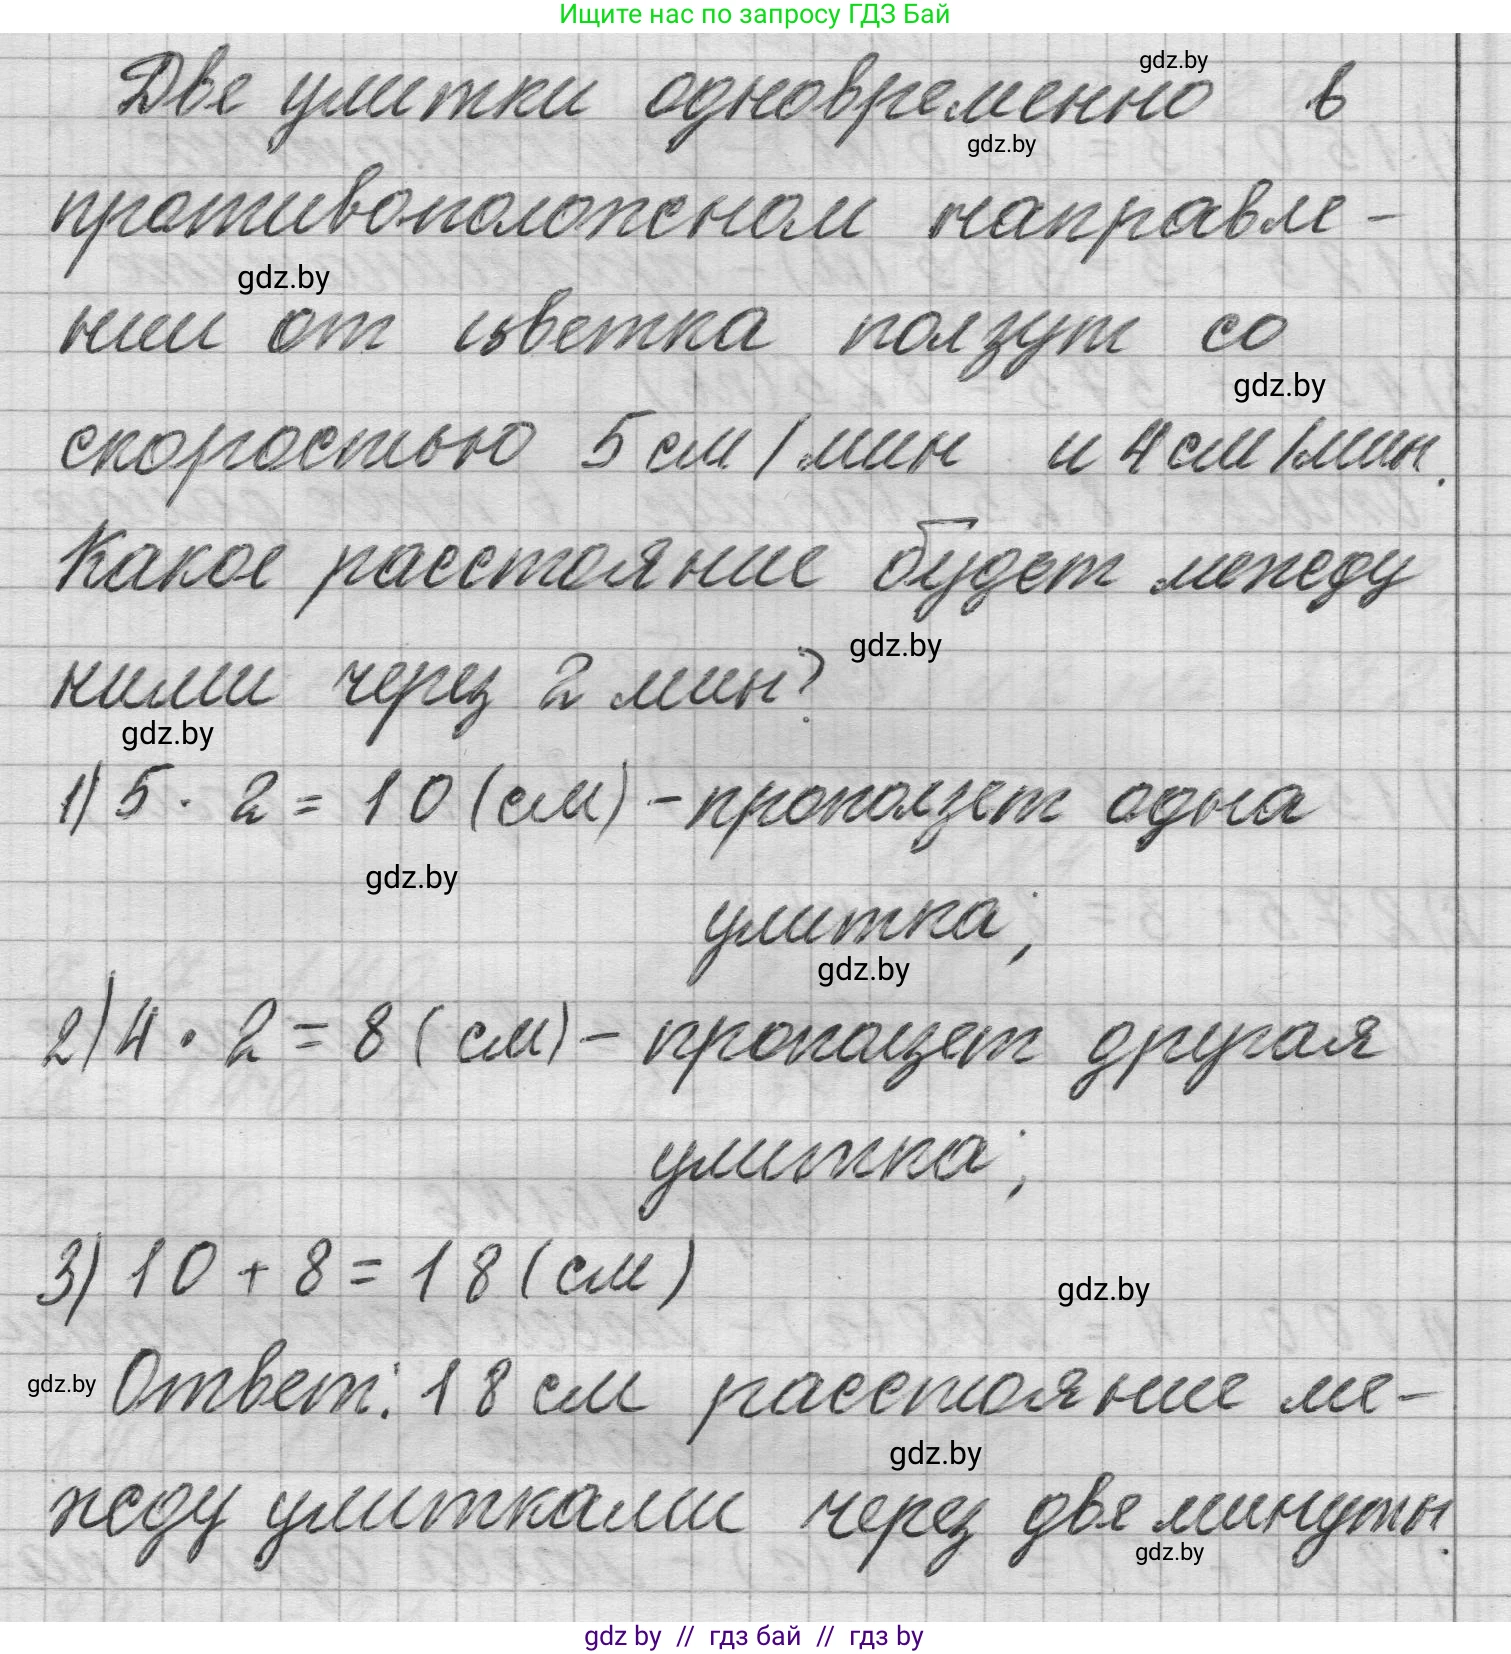 Ищите нас по запросу ГДЗ Бай
Две улитки одновременно в
gdz.by
gdz.by
противоположном направле-
gdz.by
нии от цветка ползут со
gdz.by
скоростью 5 см/мин и 4 см/мин.
Какое расстояние будет между
gdz.by
ними через 2 мин?
gdz.by
1) 5 · 2 = 10 (см) - проползет одна
gdz.by
улитка;
gdz.by
2) 4 · 2 = 8 (см) - проползет другая
улитка;
3) 10 + 8 = 18 (см)
gdz.by
gdz.by
Ответ: 18 см расстояние ме-
gdz.by
жду улитками через две минуты.
gdz.by
gdz by // гдз бай // гдз by